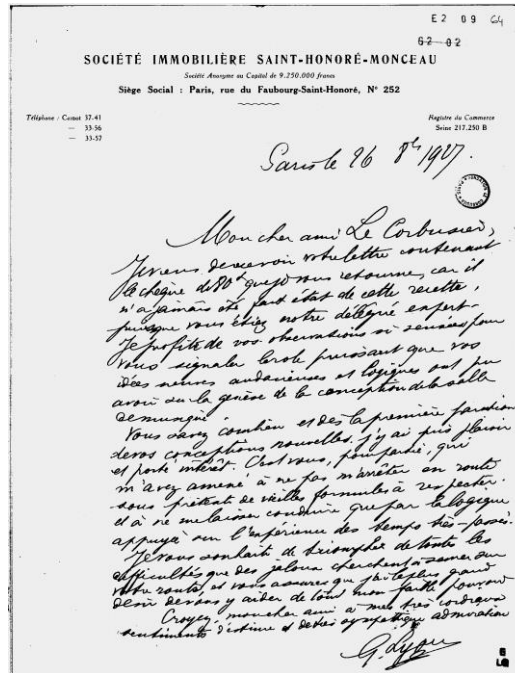 E2 09 64
62-02
SOCIÉTÉ IMMOBILIÈRE SAINT-HONORÉ-MONCEAU
Société Anonyme au Capital de 9.250.000 francs
Siège Social : Paris, rue du Faubourg-Saint-Honoré, N° 252
Téléphone : Carnot 37-41
— 33-56
— 33-57
Registre du Commerce
Seine 217.250 B
Paris le 26 8bre 1927.
Mon cher ami Le Corbusier,
Je viens de recevoir votre lettre contenant
le chèque de que je vous retourne, car il
n'a jamais été fait état de cette recette,
puisque vous étiez notre délégué expert.
Je profite de vos observations si sensées pour
vous signaler le rôle puissant que vos
idées neuves audacieuses et logiques ont pu
avoir sur la genèse de la conception de la salle
de musique.
Vous savez combien et dès la première parution
de vos conceptions nouvelles, j'y ai pris plaisir
et porté intérêt. C'est vous, pour partie, qui
m'avez amené à ne pas m'arrêter en route
sous prétexte de vieilles formules à respecter
et à ne me laisser conduire que par la logique
appuyée sur l'expérience des temps très-passés.
Je vous souhaite de triompher de toutes les
difficultés que des jaloux cherchent à semer sur
votre route, et vous assure que j'ai le plus grand
désir de vous y aider de tout mon faible pouvoir
Croyez, mon cher ami à mes très cordiaux
sentiments d'estime et de très sympathique admiration
G. Lyon